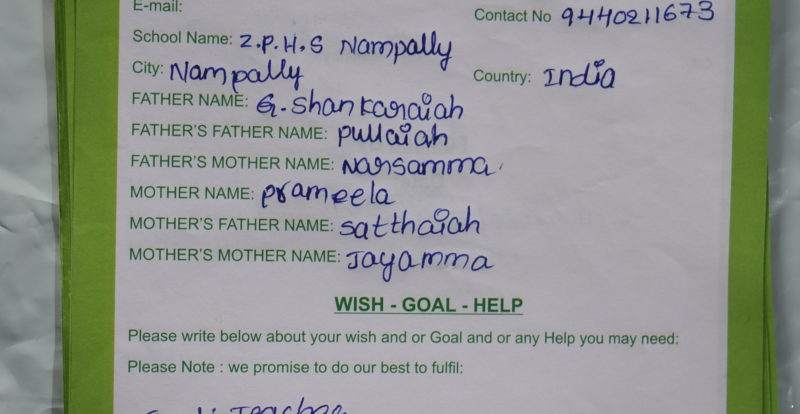 E-mail:
Contact No 9440211673
School Name: Z.P.H.S Nampally
City: Nampally Country: India
FATHER NAME: G.Shankaraiah
FATHER'S FATHER NAME: pullaiah
FATHER'S MOTHER NAME: Narsamma
MOTHER NAME: prameela
MOTHER'S FATHER NAME: satthaiah
MOTHER'S MOTHER NAME: Jayamma
WISH - GOAL - HELP
Please write below about your wish and or Goal and or any Help you may need:
Please Note : we promise to do our best to fulfil: